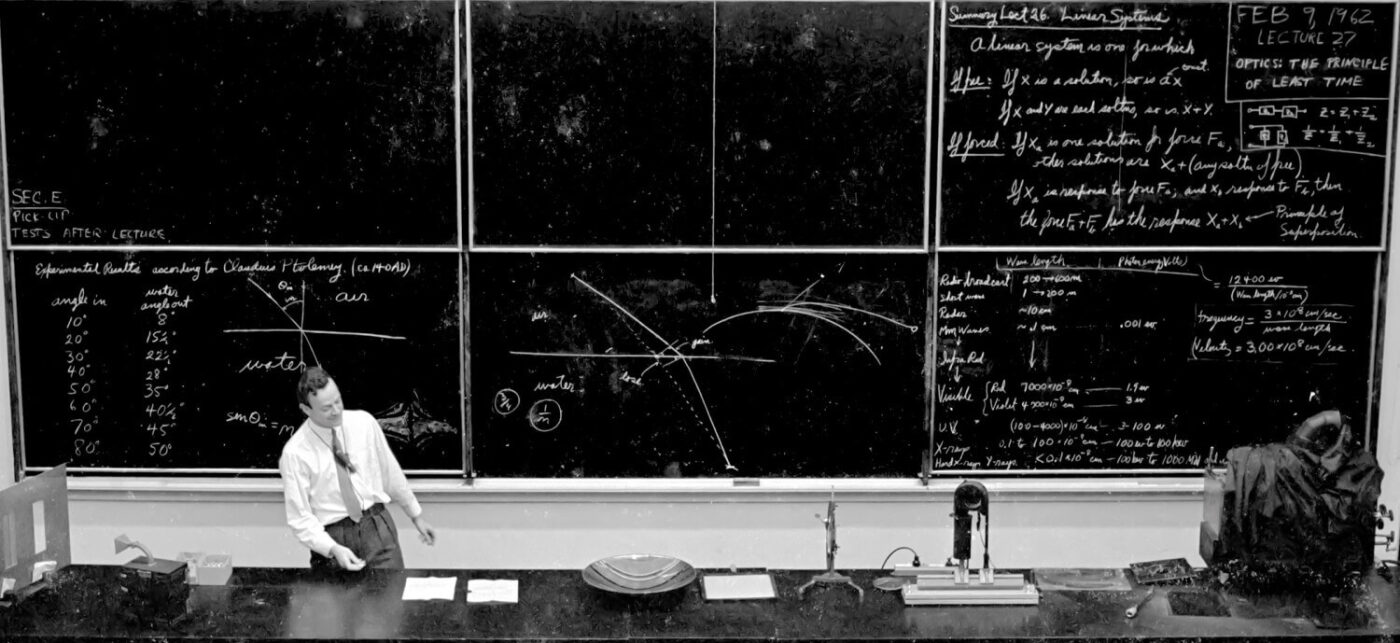 SEC. E
PICK-UP
TESTS AFTER LECTURE.
Experimental Results according to Claudius Ptolemy. (ca 140 AD)
angle in
water angle out
10° 8°
20° 15½°
30° 22½°
40° 28°
50° 35°
60° 40½°
70° 45°
80° 50°
air
water
sin θ = n
air
gain
water
lose
3/4
1/n
Summary Lect 26. Linear Systems
A linear system is one for which
If free: If X is a solution, so is aX
const.
If X and Y are each soltns, so is X+Y.
If forced: If Xa is one solution for force Fa,
other solutions are Xa + (any soltn of free)
If Xa is response to force Fa, and Xb response to Fb, then
the force Fa+Fb has the response Xa+Xb ← Principle of
Superposition.
FEB 9, 1962
LECTURE 27
OPTICS: THE PRINCIPLE
OF LEAST TIME
Z = Z1 + Z2
1/Z = 1/Z1 + 1/Z2
Wave length
Radio broadcast 200 → 600 m
Short wave 1 → 200 m
Radar ~10 cm
Mm Waves ~.1 cm .001 ev
Infra Red
Visible
Red 7000×10⁻⁸ cm 1.9 ev
Violet 4000×10⁻⁸ cm 3 ev
U.V. 3-100 ev
X-rays 0.1 to 100×10⁻⁸ cm — 100 ev to 100 kev
Hard x-rays γ-rays <0.1×10⁻⁸ cm — 100 kev to 1000 Mev
= 12400 ev
(Wave length/10⁻⁸ cm)
frequency = 3×10¹⁰ cm/sec.
wave length
Velocity = 3.00×10¹⁰ cm/sec.